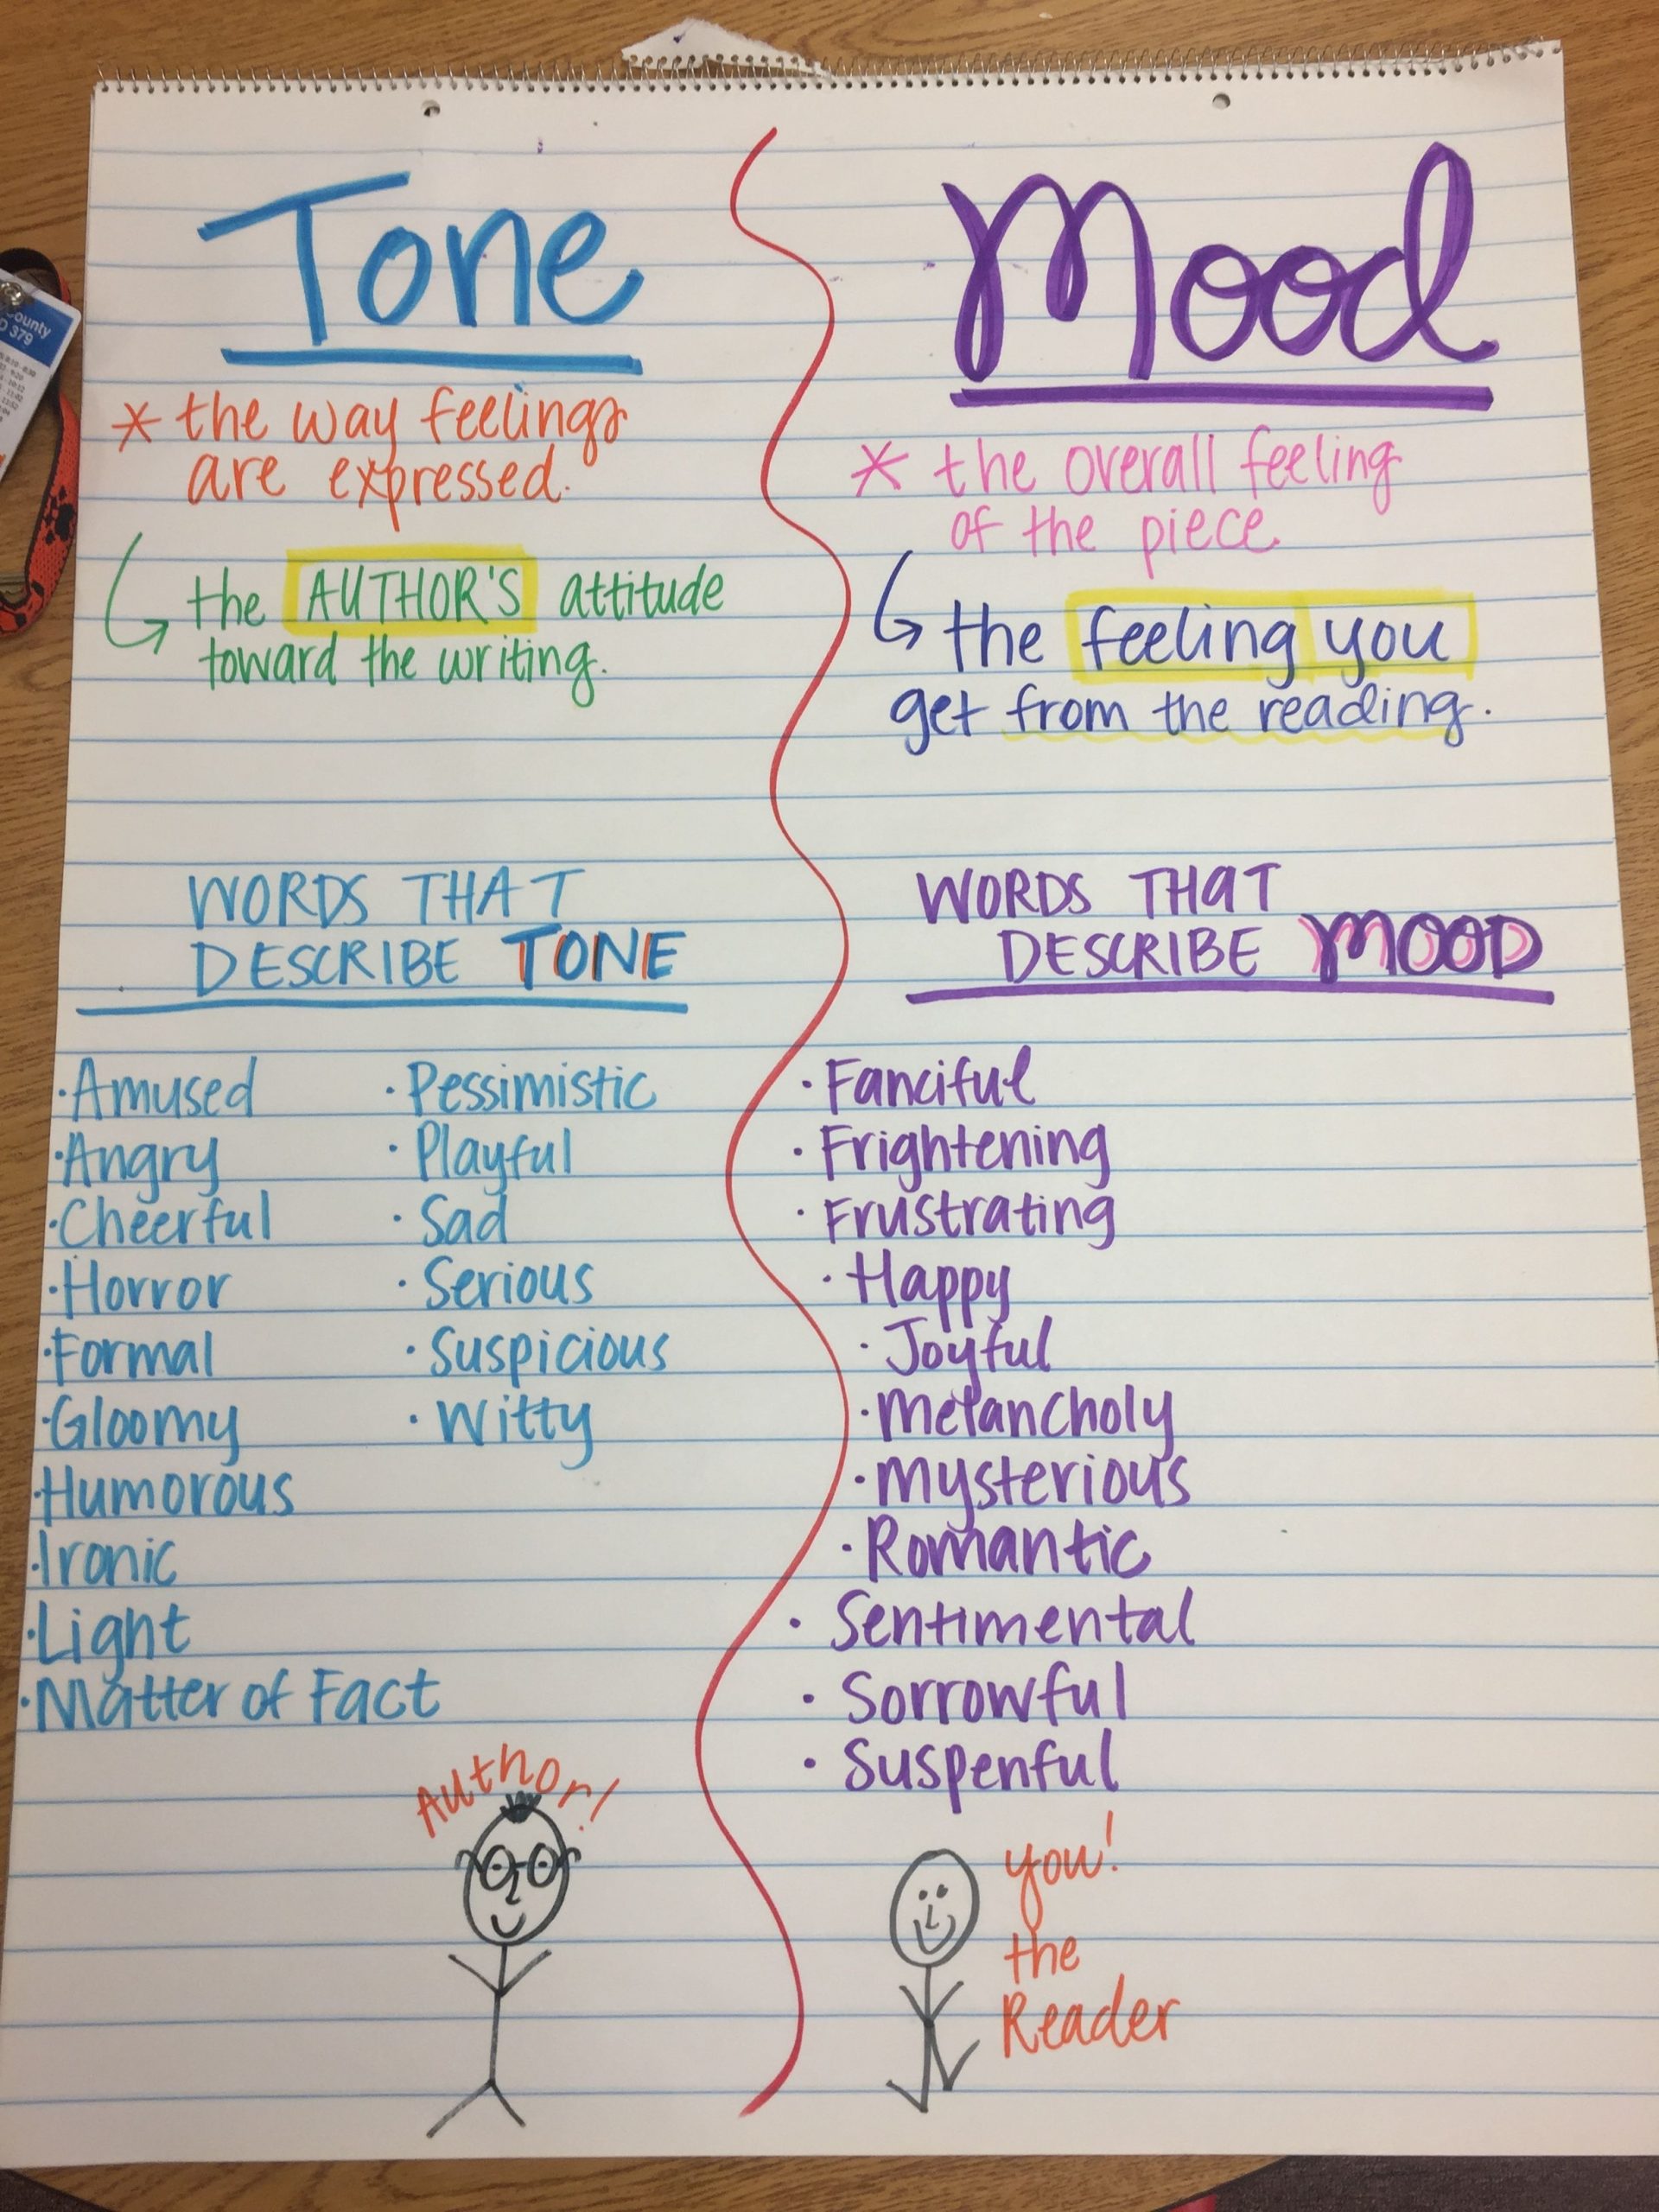 Tone
* the way feelings
are expressed.
the AUTHOR'S attitude
toward the writing.
WORDS THAT
DESCRIBE TONE
·Amused
·Angry
·Cheerful
·Horror
·Formal
·Gloomy
·Humorous
·Ironic
·Light
·Matter of Fact
·Pessimistic
·Playful
·Sad
·Serious
·Suspicious
·Witty
Author!
Mood
* the overall feeling
of the piece
the feeling you
get from the reading.
WORDS THAT
DESCRIBE MOOD
·Fanciful
·Frightening
·Frustrating
·Happy
·Joyful
·Melancholy
·Mysterious
·Romantic
·Sentimental
·Sorrowful
·Suspenful
you!
the
Reader
ounty
D 379